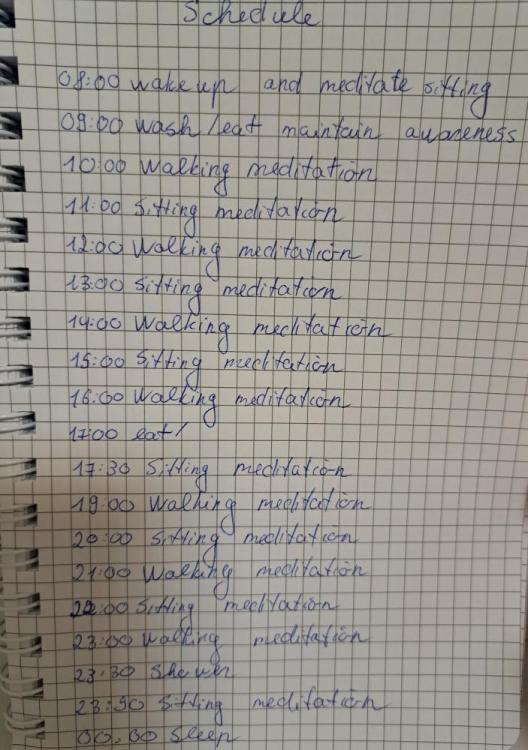 Schedule
08:00 wake up and meditate sitting
09:00 wash/eat maintain awareness
10:00 walking meditation
11:00 Sitting meditation
12:00 Walking meditation
13:00 Sitting meditation
14:00 Walking meditation
15:00 Sitting meditation
16:00 Walking meditation
17:00 eat/
17:30 Sitting meditation
19:00 Walking meditation
20:00 Sitting meditation
21:00 Walking meditation
22:00 Sitting meditation
23:00 Walking meditation
23:30 Shower
23:50 Sitting meditation
00:00 Sleep